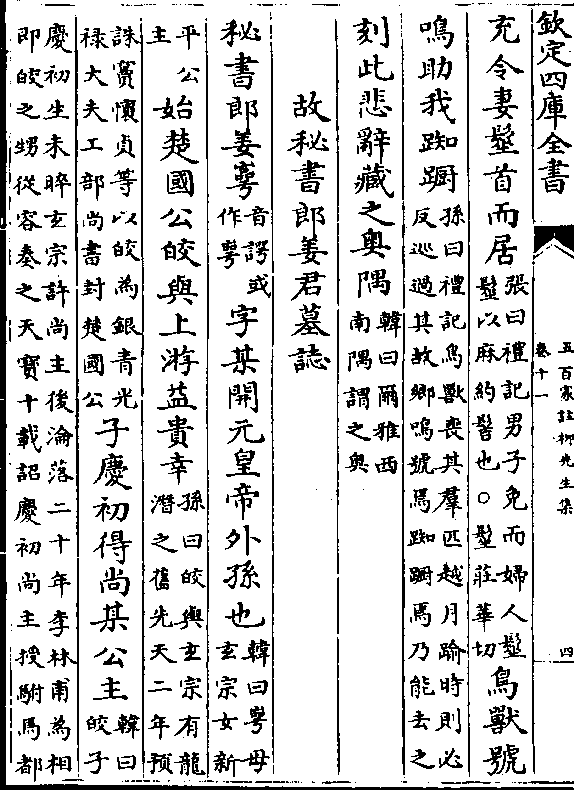 欽定四庫全書
五百家註柳先生集
卷十一
四
充令妻髽首而居張曰禮記男子免而婦人髽髽以麻約髻也○髽莊華切鳥獸號
鳴助我踟蹰孫曰禮記鳥獸喪其羣匹越月踰時則必反巡過其故鄉鳴號焉踟蹰焉乃能去之
刻此悲辭藏之奥隅韓曰爾雅西南隅謂之奥
故秘書郎姜君墓誌
秘書郎姜崿音諤或作咢字某開元皇帝外孫也韓曰咢母玄宗女新
平公主始楚國公皎與上游益貴幸孫曰皎與玄宗有龍潛之舊先天二年預
誅竇懷貞等以皎為銀青光祿大夫工部尚書封楚國公子慶初得尚某公主韓曰皎子
慶初生未晬玄宗許尚主後淪落二十年李林甫為相即皎之甥從容奏之天寳十載詔慶初尚主授駙馬都